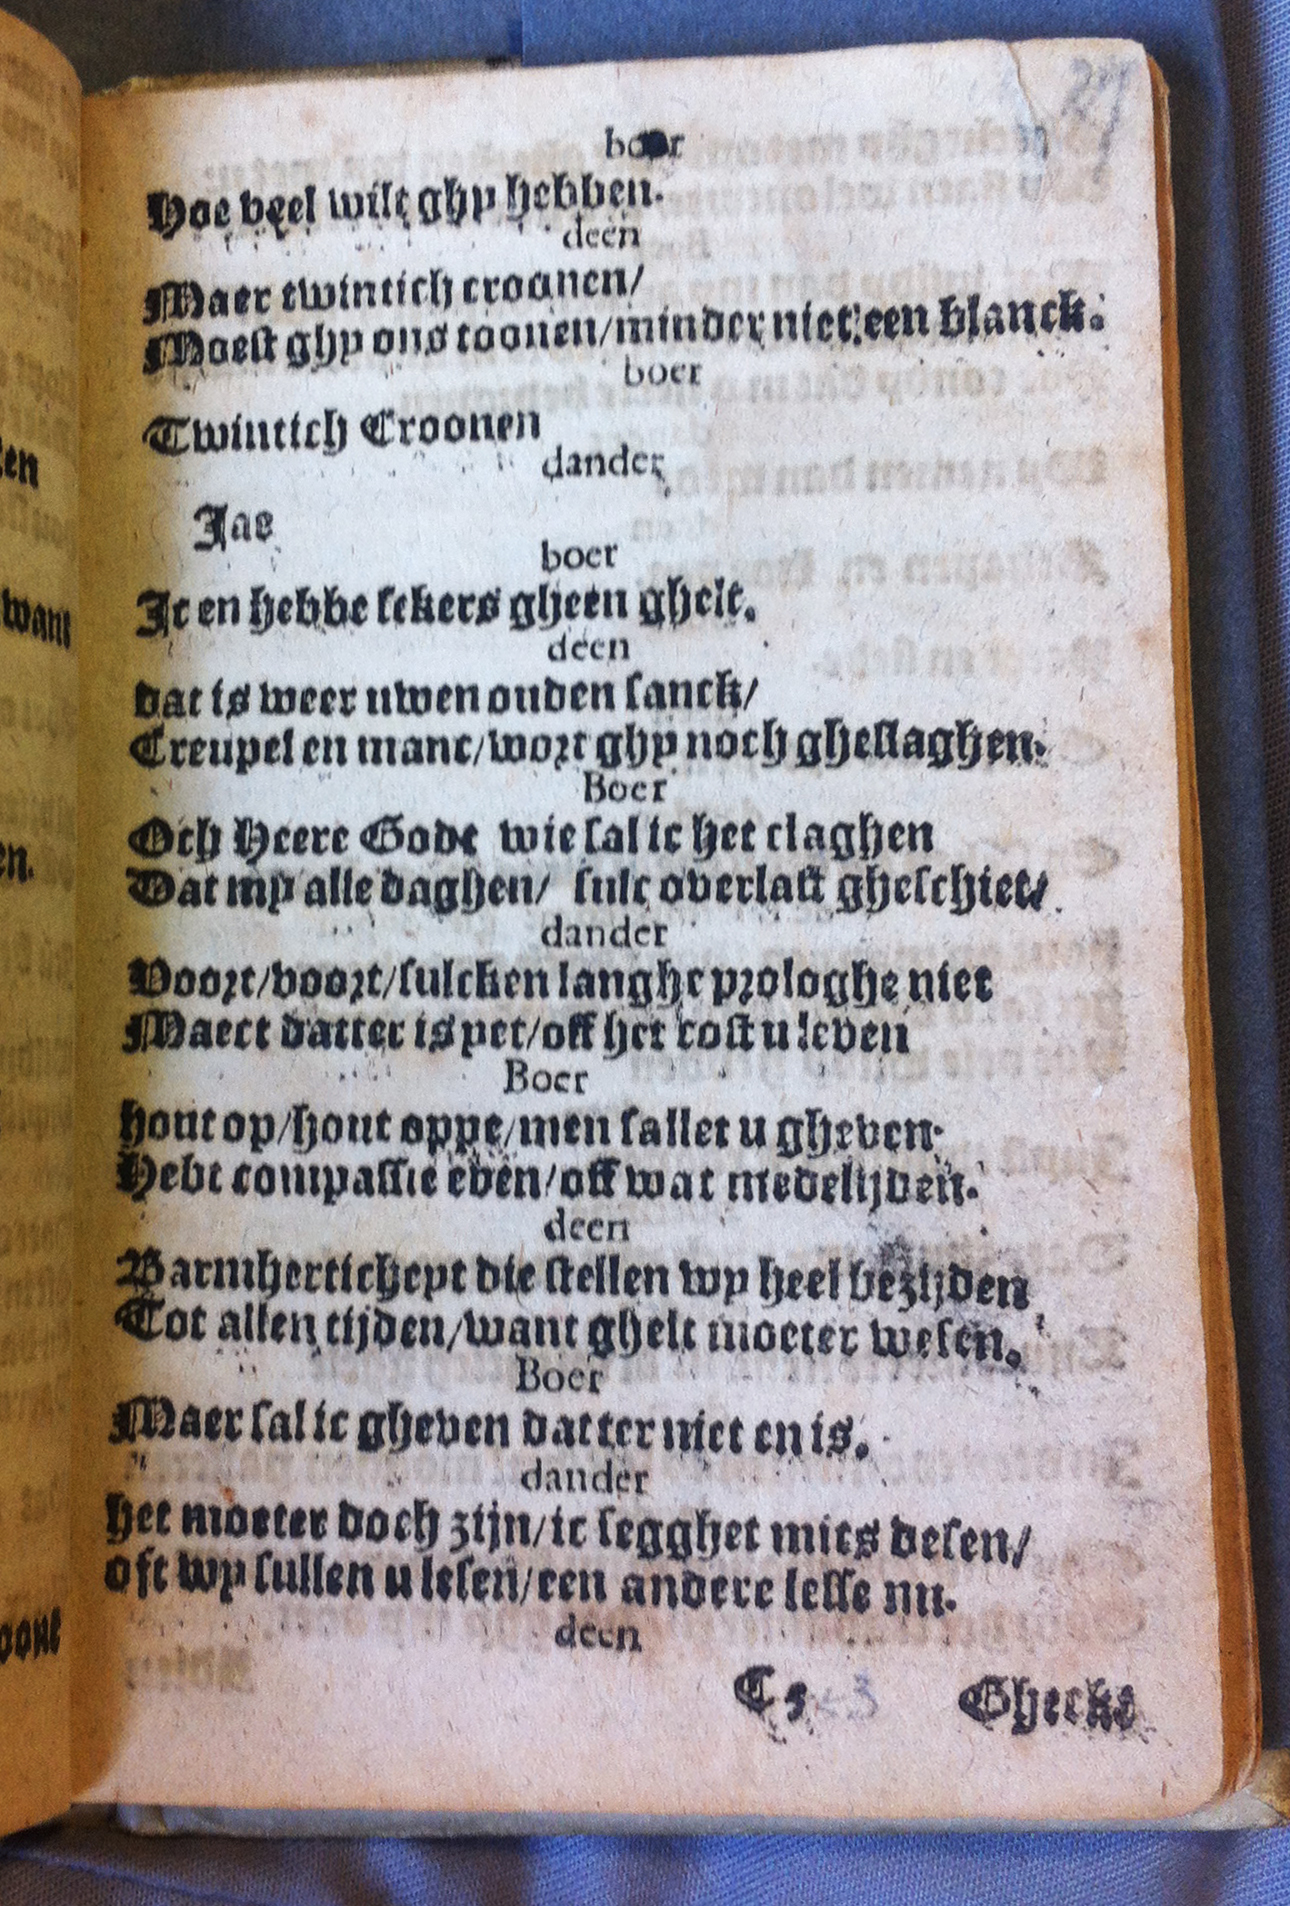 27
boer
Hoe veel wilt ghy hebben.
deen
Maer twintich croonen/
Moest ghy ons toonen/minder niet een blanck.
boer
Twintich Croonen
dander
Jae
boer
Ic en hebbe sekers gheen ghelt.
deen
dat is weer uwen ouden sanck/
Creupel en manc/wort ghy noch gheslaghen.
Boer
Och Heere Godt wie sal ic het claghen
Dat my alle daghen/ sulc overlast gheschiet/
dander
Voort/voort/sulcken langhe prologhe niet
Maect datter is yet/off het cost u leven
Boer
hout op/hout oppe/men sallet u gheven.
Hebt compassie even/off wat medelijden.
deen
Barmherticheyt die stellen wy heel bezijden
Tot allen tijden/want ghelt moeter wesen.
Boer
Maer sal ic gheven datter niet en is.
dander
het moeter doch zijn/ic segghet mits desen/
oft wy sullen u lesen/een andere lesse nu.
deen
Ghecks